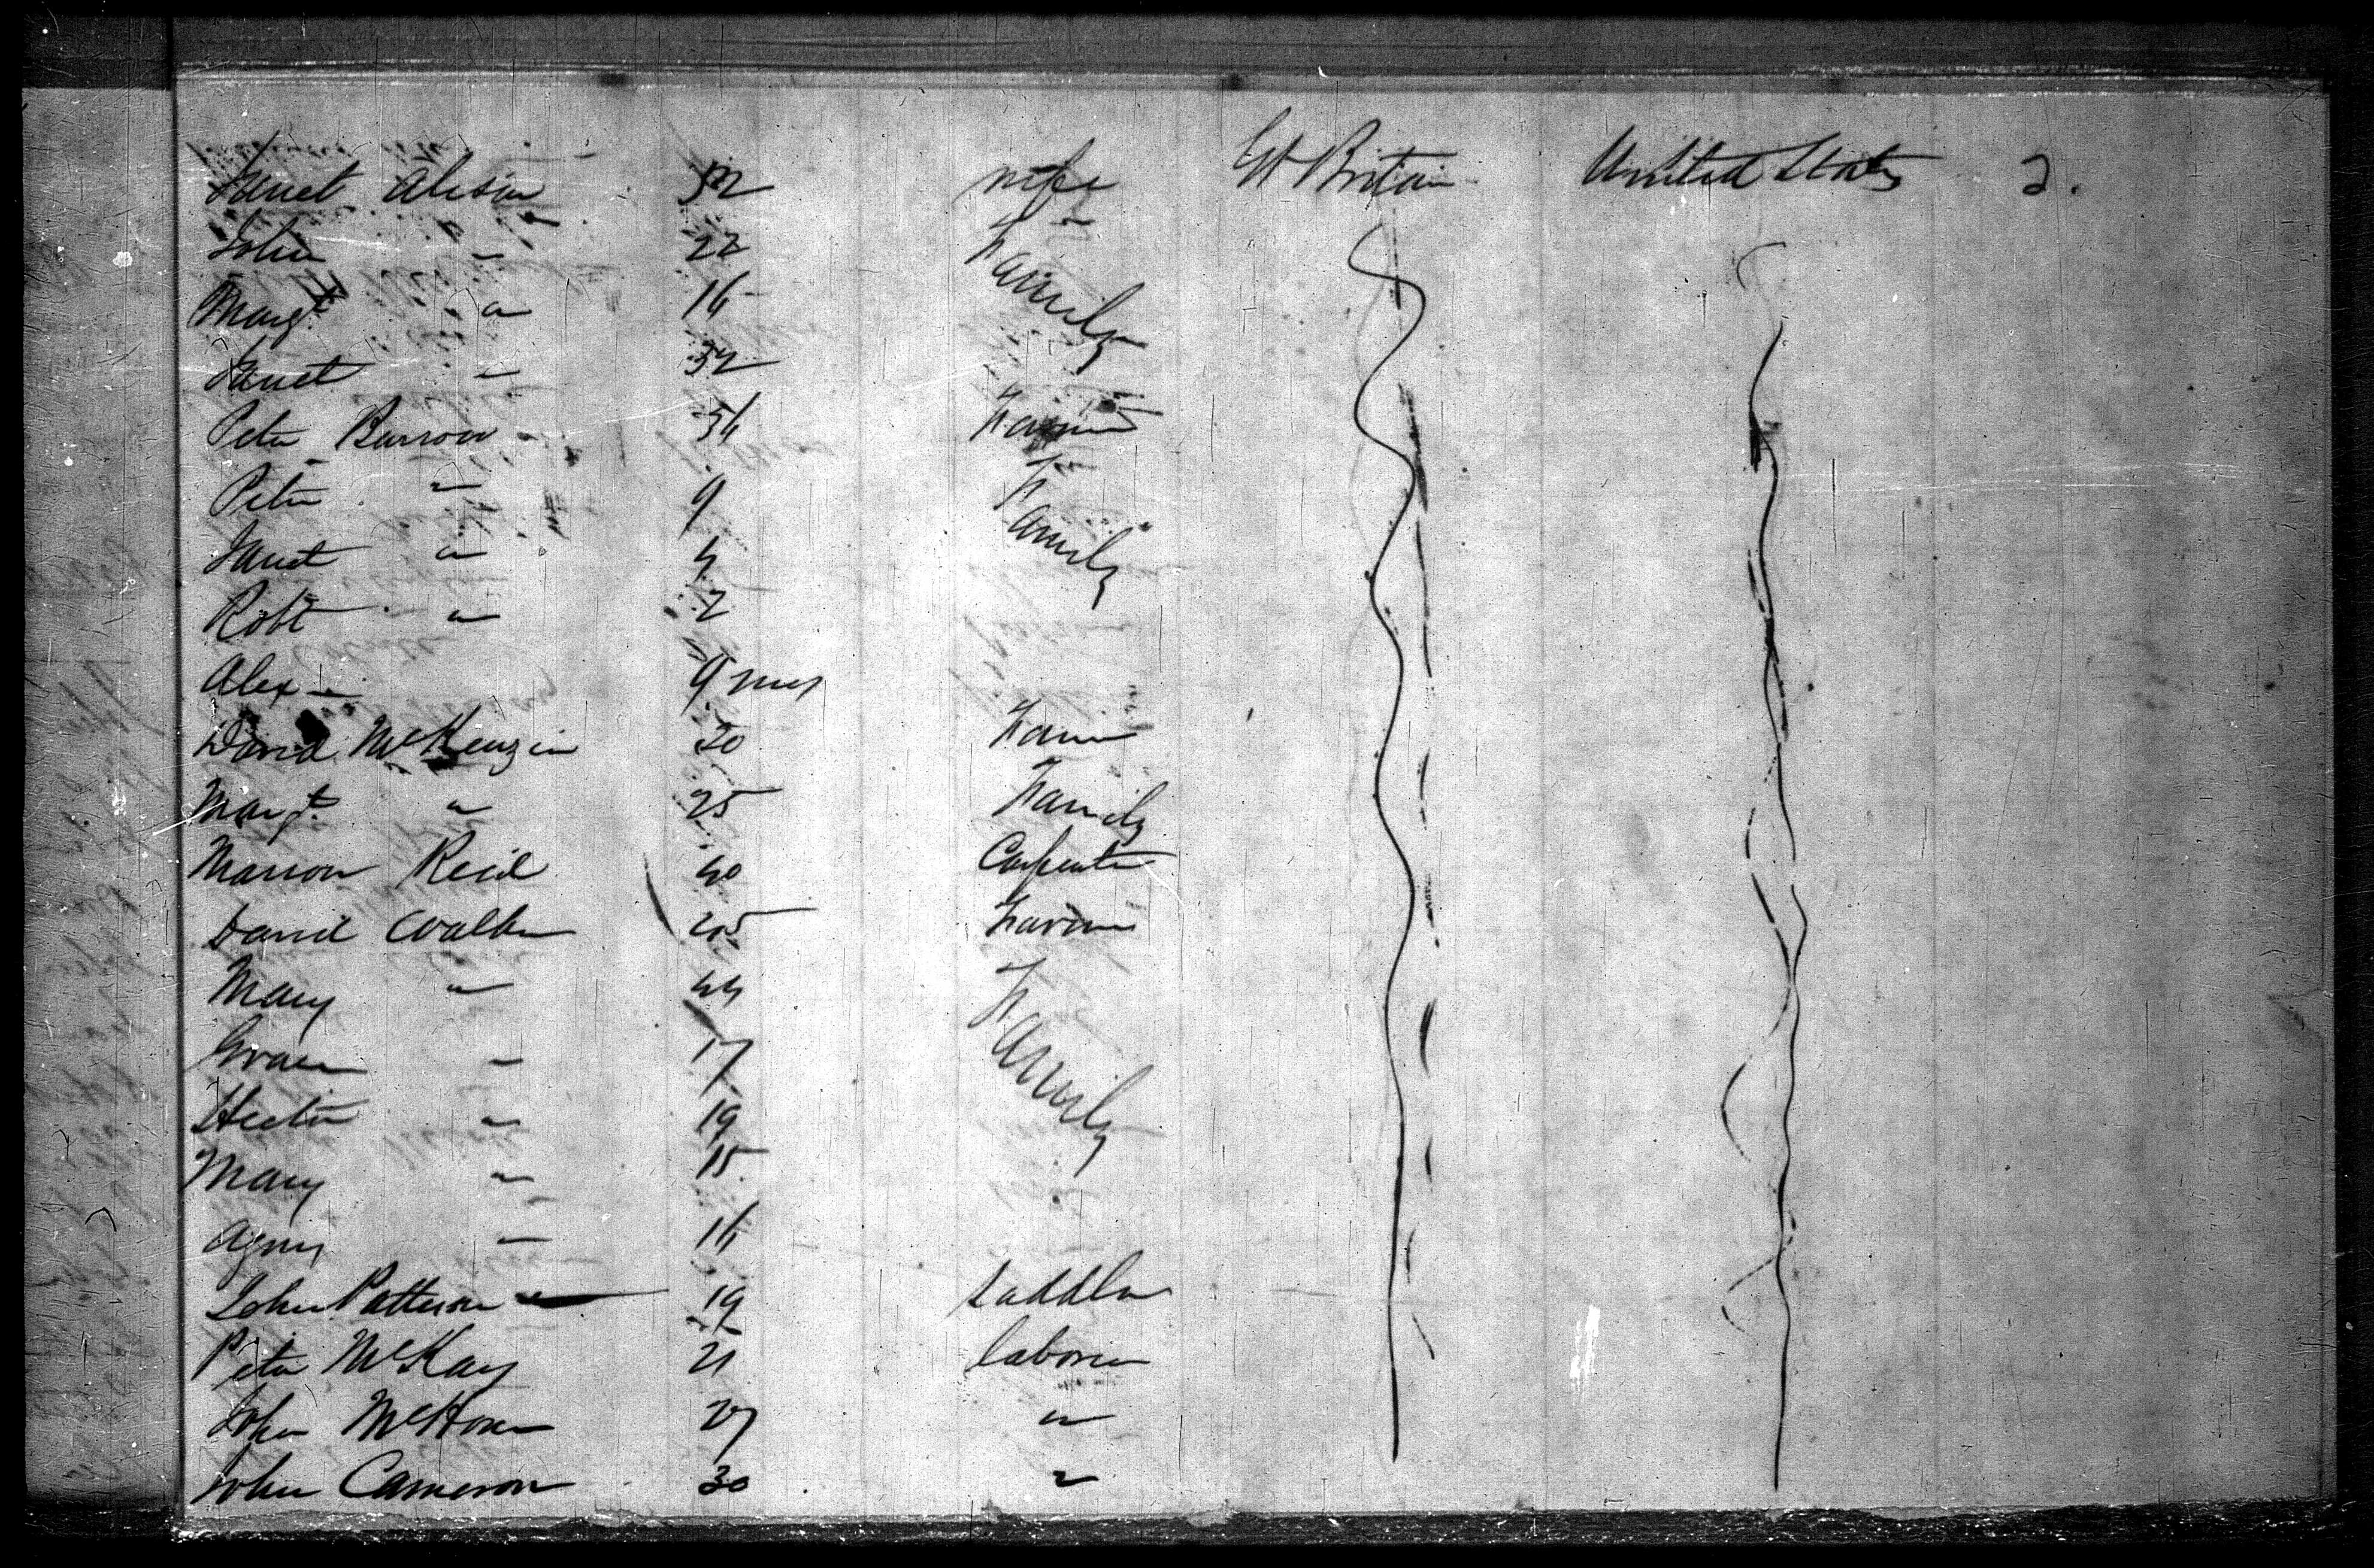 Janet Alison 52 wife Gt Britain United States 2.
John " 22 Family
Margt " 16
Janet " 32
Peter Burrow 36 Farmer
Peter " 9 Family
Janet " 4
Robt " 2
Alex " 9 mos
David McKenzie 30 Farmer
Margt " 25 Family
Marion Reid 40 Carpenter
David Walker 45 Farmer
Mary " 44 Family
Grace " 17
Hector " 19
Mary " 15
Agnes " 16
John Patterson 19 Saddler
Peter McKay 21 laborer
John 27 "
John Cameron 30 "